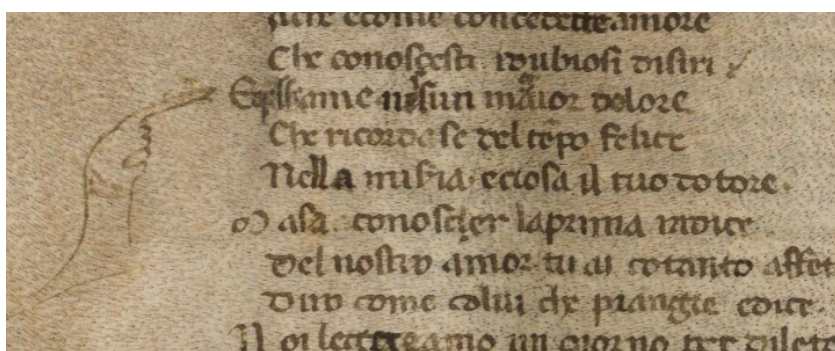 Ache ecome concedette amore
Che conosciesti idubiosi disiri
Equella ame nesun magior dolore
Che ricordase del tēpo felice
Nella miseria eciosa il tuo dotore
Masa conoscier laprima radice
Del nostro amor tu ai cotanto affet
Diro come colui che piangie edice
Noi legeravamo un giorno per dilett